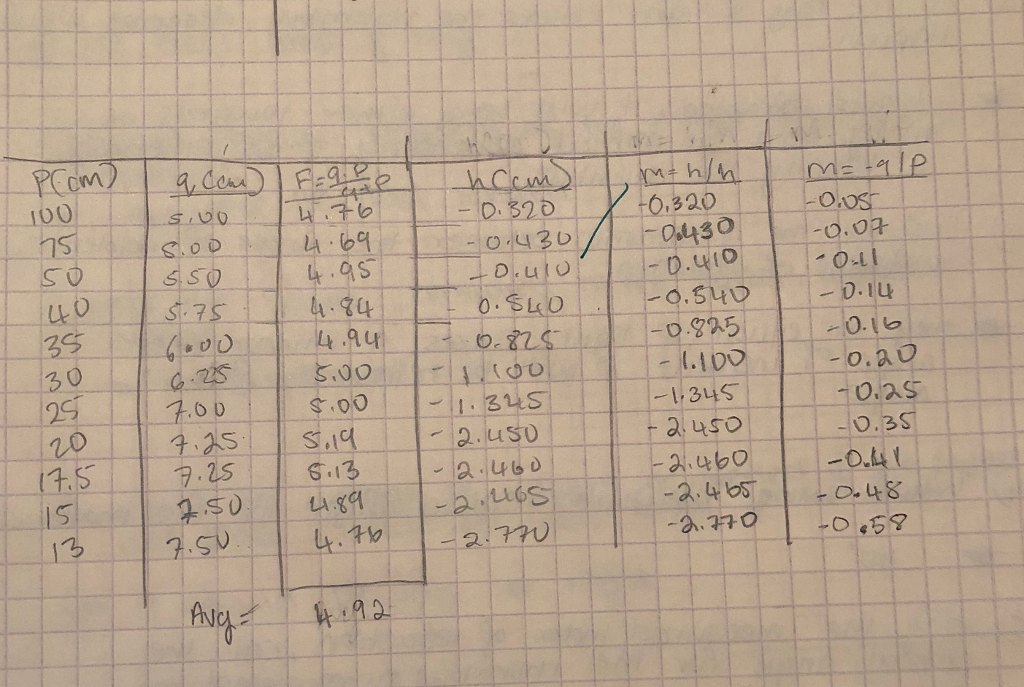 P(cm) q(cm) F=q·P/q+P h(cm) m=h/h m=-q/P
100 5.00 4.76 -0.320 -0.320 -0.05
75 5.00 4.69 -0.430 -0.430 -0.07
50 5.50 4.95 -0.410 -0.410 -0.11
40 5.75 4.84 -0.540 -0.540 -0.14
35 6.00 4.94 -0.825 -0.825 -0.16
30 6.25 5.00 -1.100 -1.100 -0.20
25 7.00 5.00 -1.345 -1.345 -0.25
20 7.25 5.19 -2.450 -2.450 -0.35
17.5 7.25 5.13 -2.460 -2.460 -0.41
15 7.50 4.89 -2.465 -2.465 -0.48
13 7.50 4.76 -2.770 -2.770 -0.58
Avg = 4.92